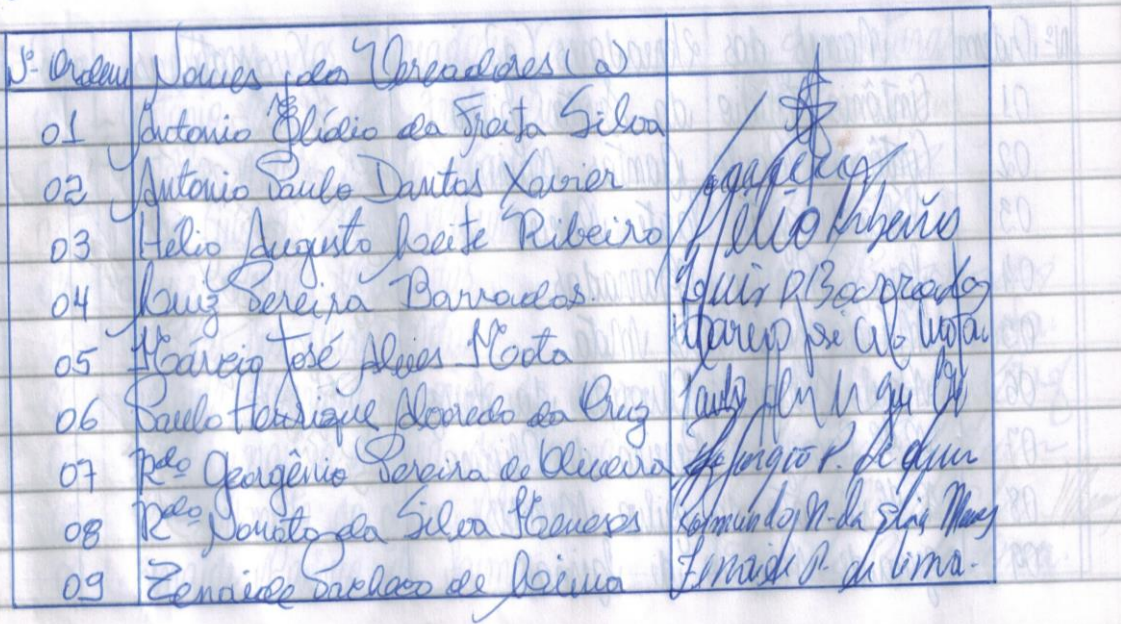 Nº Ordem Nomes dos Vereadores (a)
01 Antonio Elídio da Frota Silva
02 Antonio Paulo Dantas Xavier
03 Hélio Augusto Leite Ribeiro Hélio Ribeiro
04 Luiz Pereira Barrados. Luis P Barrados
05 Márcio José Alves Mota Marcio José Alv Mota
06 Paulo Henrique Azevedo da Cruz Paulo
07 Rdo Georgênio Pereira de Oliveira P. de
08 Rdo Nonato da Silva Meneses Raimundo N. da Silva Meneses
09 Zenaide Pacheco de Lima Zenaide P. de Lima.